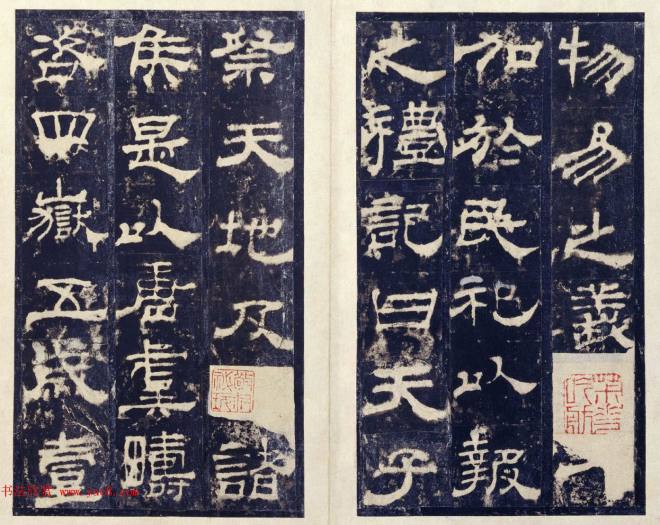 物易之義
加於民祀以報
之禮記曰天子
祭天地及
諸
侯是以唐虞疇
咨四嶽五歲壹
书法欣赏 www.yac8.com